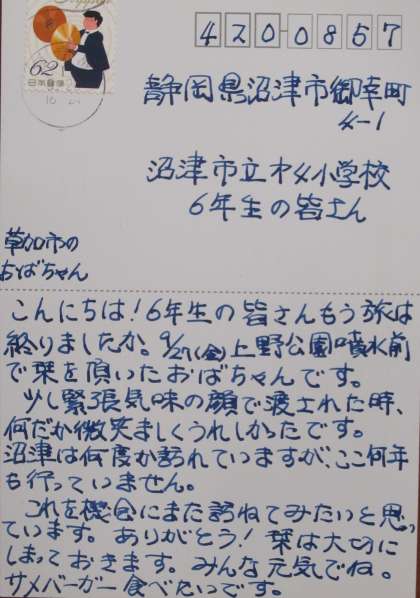 62
日本郵便
420-0857
静岡県沼津市御幸町
4-1
沼津市立才4小学校
6年生の皆さん
草加市の
おばちゃん
こんにちは!6年生の皆さんもう旅は
終りましたか。9/27(金)上野公園噴水前
で栞を頂いたおばちゃんです。
少し緊張気味の顔で渡された時、
何だか微笑ましくうれしかったです。
沼津は何度か訪れていますが、ここ何年
も行っていません。
これを機会にまた訪ねてみたいと思っ
ています。ありがとう!栞は大切に
しまっておきます。みんな元気でね。
サメバーガー食べたいです。